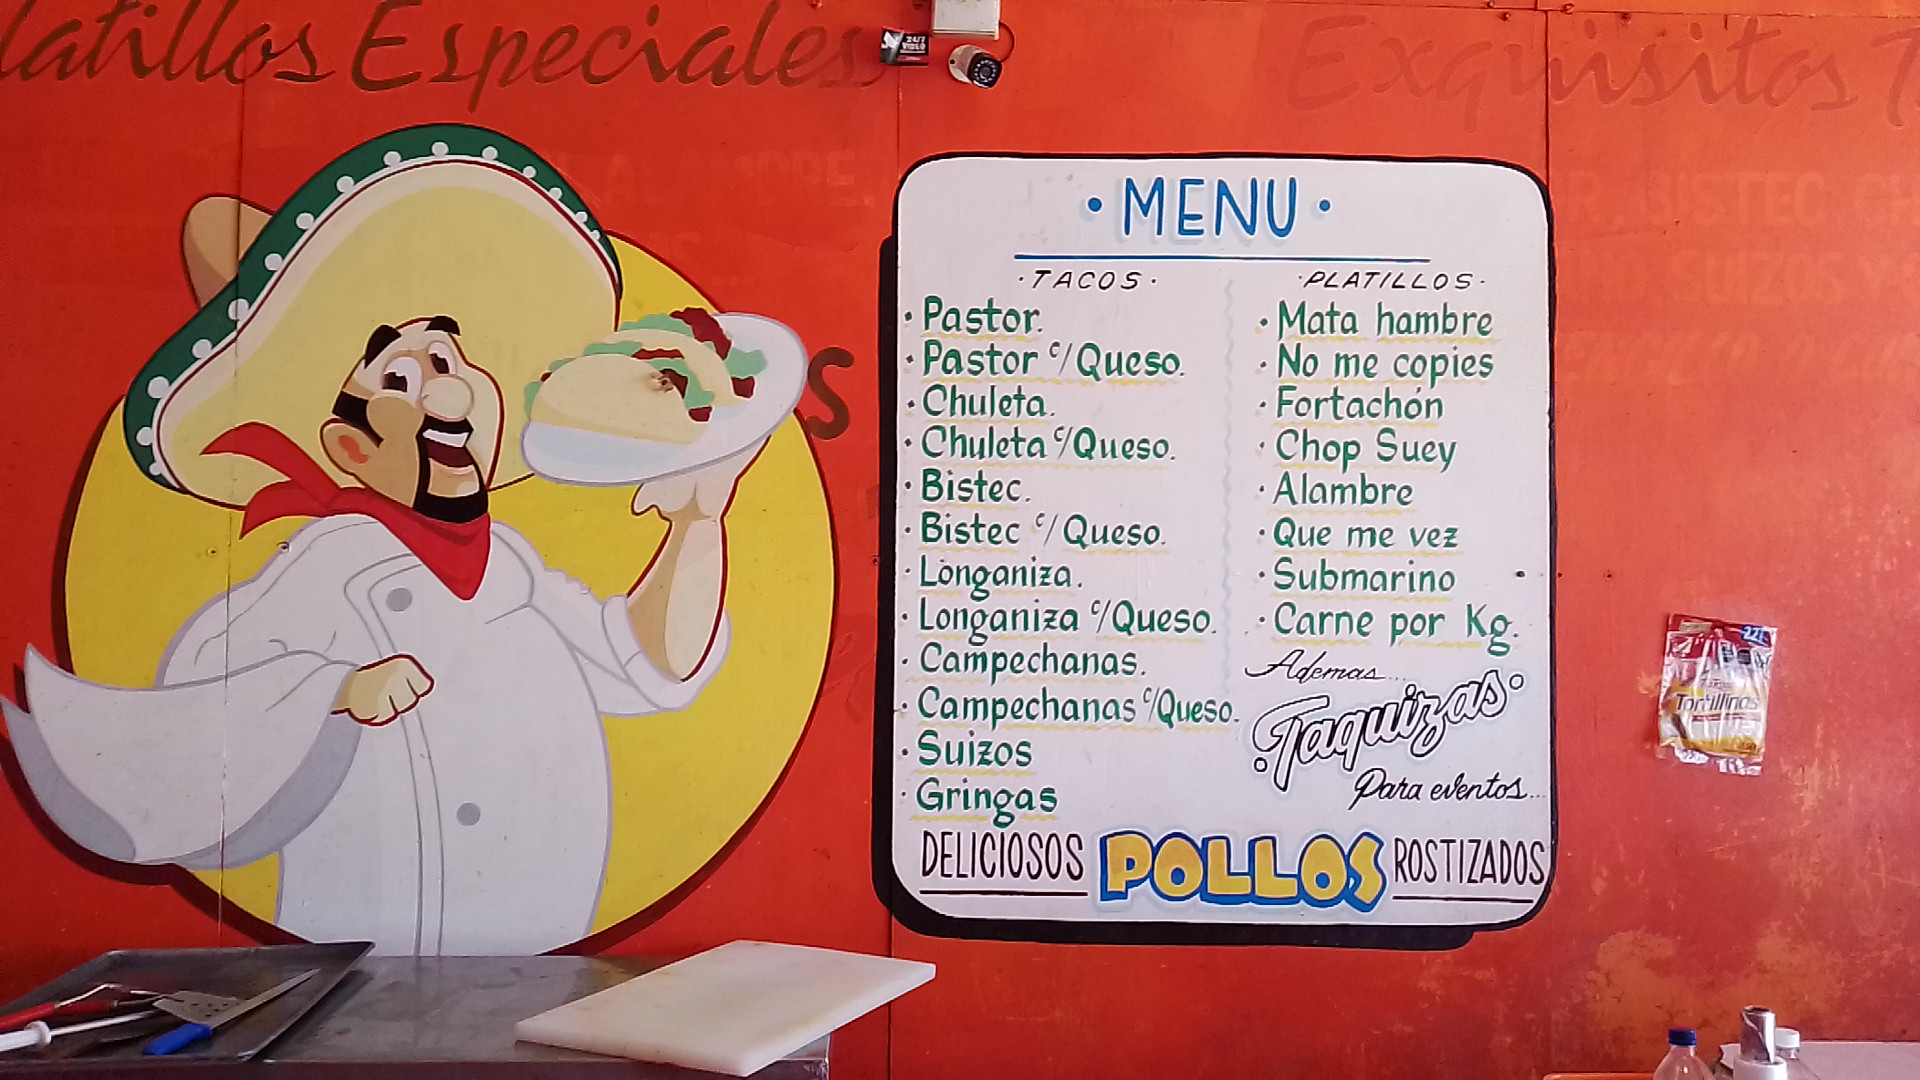 latillos Especiales
Exquisitos T
24/7
VIDEO
R. BISTEC
SUIZOS Y
S
• MENU •
· TACOS ·
· Pastor.
· Pastor c/Queso.
· Chuleta.
· Chuleta c/Queso.
· Bistec.
· Bistec c/Queso.
· Longaniza.
· Longaniza c/Queso.
· Campechanas.
· Campechanas c/Queso.
· Suizos
· Gringas
· PLATILLOS ·
· Mata hambre
· No me copies
· Fortachón
· Chop Suey
· Alambre
· Que me vez
· Submarino
· Carne por Kg.
Ademas...
Taquizas
Para eventos...
DELICIOSOS POLLOS ROSTIZADOS
Tortillinas